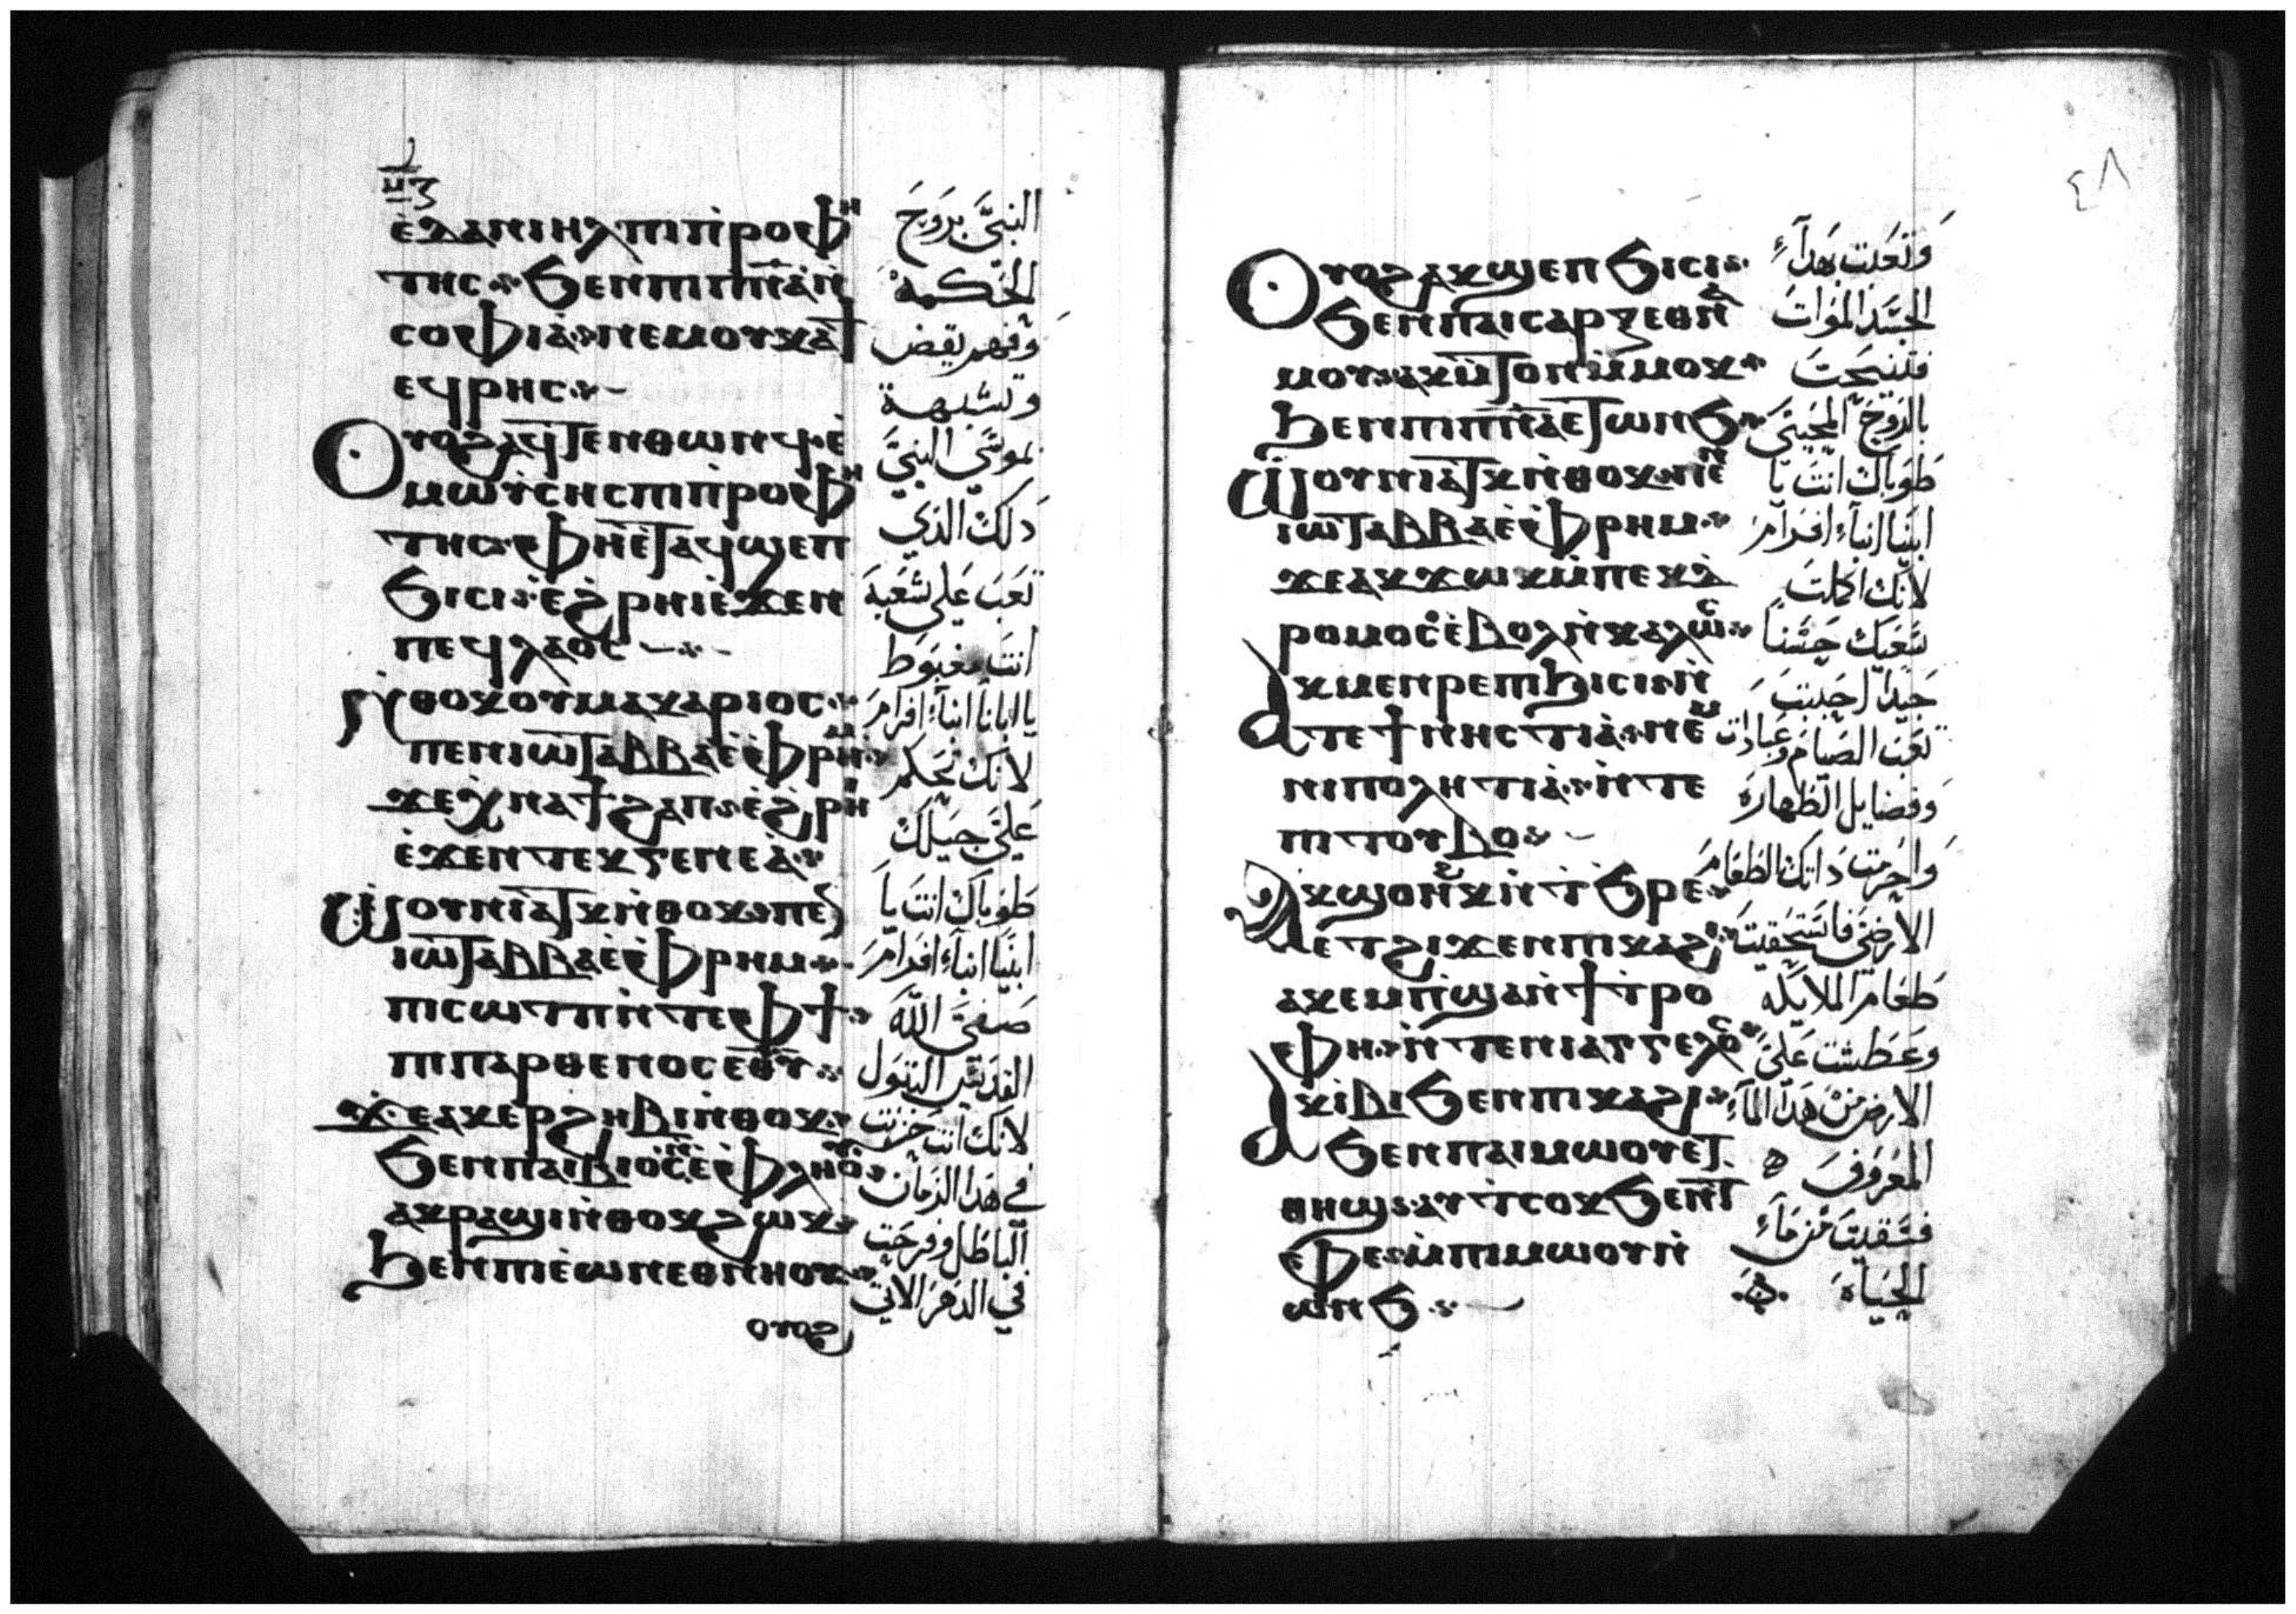 ⲉ̀ⲇⲁⲛⲓⲏⲗ ⲡⲓⲡⲣⲟⲫⲏ
ⲧⲏⲥ ϧⲉⲛⲡⲓⲡⲛ̅ⲁ̅ⲛ̀
ⲥⲟⲫⲓⲁ̀ ⲛⲉⲙⲟⲩⲕⲁϯ
ⲉϥⲣⲏⲥ
Ⲟⲩⲟϩⲁϥⲧⲉⲛⲑⲱⲛϥ ⲉ̀
ⲙⲱⲩ̀ⲥⲏⲥ ⲡⲓⲡⲣⲟⲫⲏ
ⲧⲏⲥ ⲫⲏⲉ̀ⲧⲁϥϣⲉⲡ
ϧⲓⲥⲓ ⲉ̀ϩⲣⲏⲓⲉ̀ϫⲉⲛ
ⲡⲉϥⲗⲁⲟⲥ
Ⲛ̀ⲑⲟⲕⲟⲩⲙⲁⲕⲁⲣⲓⲟⲥ
ⲡⲉⲛⲓⲱⲧⲁⲃⲃⲁⲉ̀ⲫⲣⲏⲙ
ϫⲉⲭⲛⲁϯϩⲁⲡ ⲉ̀ϩⲣⲏⲓ
ⲉ̀ϫⲉⲛⲧⲉⲕⲅⲉⲛⲉⲁ̀
Ⲱ̀ⲟⲩⲛⲓⲁⲧⲕⲛ̀ⲑⲟⲕ ⲡⲉⲛ
ⲓⲱⲧⲁⲃⲃⲁⲉ̀ⲫⲣⲏⲙ
ⲡⲓⲥⲱⲧⲡⲛ̀ⲧⲉⲫϯ
ⲡⲓⲡⲁⲣⲑⲉⲛⲟⲥⲉⲑ̅ⲩ̅
ϫⲉⲁⲕⲉⲣϩⲏⲃⲓⲛ̀ⲑⲟⲕ
ϧⲉⲛⲡⲁⲓⲃⲓⲟⲥⲛ̀ⲉ̀ⲫⲗⲏⲟⲩ
ⲁⲕⲣⲁϣⲓⲛ̀ⲑⲟⲕϩⲱⲕ
ϧⲉⲛⲡⲓⲉ̀ⲱⲛⲉⲑⲛⲏⲟⲩ
ⲟⲩⲟϩ
النبي بروح
الحكمه
وفهم يقض
وتشبهة
بموسي النبي
دلك الذي
تعب علي شعبه
انت مغبوط
يا ابانا انبآء افرام
لانك تحكم
علي جيلك
طوباك انت يا
ابينا انبآء افرام
صفي الله
القديس البتول
لانك انت حزنت
في هدا الزمان
الباطل وفرحت
في الدهر الاتي
٤٨
Ⲟⲩⲟϩⲁⲕϣⲉⲡϧⲓⲥⲓ
ϧⲉⲛⲡⲁⲓⲥⲁⲣⲝⲉⲑⲛⲁ
ⲙⲟⲩ ⲁⲕⲙ̀ⲧⲟⲛⲙ̀ⲙⲟⲕ
ϧⲉⲛⲡⲓⲡⲛ̅ⲁ̅ⲉⲧⲱⲛϧ
Ⲱ̀ⲟⲩⲛⲓⲁⲧⲕⲛ̀ⲑⲟⲕ ⲡⲉⲛ
ⲓⲱⲧⲁⲃⲃⲁⲉ̀ⲫⲣⲏⲙ
ϫⲉⲁⲕϫⲱⲕⲙ̀ⲡⲉⲕⲇ
ⲣⲟⲙⲟⲥⲉ̀ⲃⲟⲗⲛ̀ⲕⲁⲗⲱⲥ
Ⲁⲕⲙⲉⲛⲣⲉⲡⲓϧⲓⲥⲓ ⲛ̀
ⲧⲉϯⲛⲏⲥⲧⲓⲁ̀ ⲛⲉⲙ
ⲛⲓⲡⲟⲗⲏⲧⲓⲁ̀ ⲛ̀ⲧⲉ
ⲡⲓⲧⲟⲩⲃⲟ
Ⲁⲕϣⲟⲛϩⲕⲛ̀ϯϧⲣⲉ
ⲉⲧϩⲓϫⲉⲛⲡⲓⲕⲁϩⲓ
ⲁⲕⲉⲙⲡ̀ϣⲁⲛ̀ϯⲧⲣⲟ
ⲫⲏ ⲛ̀ⲧⲉⲛⲓⲁⲅⲅⲉⲗⲟⲥ
Ⲁⲕⲓⲃⲓϧⲉⲛⲡⲓⲕⲁϩⲓ
ϧⲉⲛⲡⲁⲓⲙⲱⲟⲩⲉⲧ
ⲑⲏϣ ⲁⲩⲧ̀ⲥⲟⲕϧⲉⲛⲧ
ⲫⲉ ⲙ̀ⲡⲓⲙⲱⲟⲩⲛ̀
ⲱⲛϧ
وتعبت بهدآء
الجسد الموات
فتنيحت
بالروح المحيي
طوباك انت يا
ابينا انبآء افرام
لانك اكملت
سعيك حسناً
جيداً احببت
تعب الصيام وعبادات
وفضايل الطهاره
واحرمت داتك الطعام
الارضي فاستحقيت
طعام الملايكه
وعطشت علي
الارض من هدا المآء
المعروف
فسقيت من مآء
الحياه